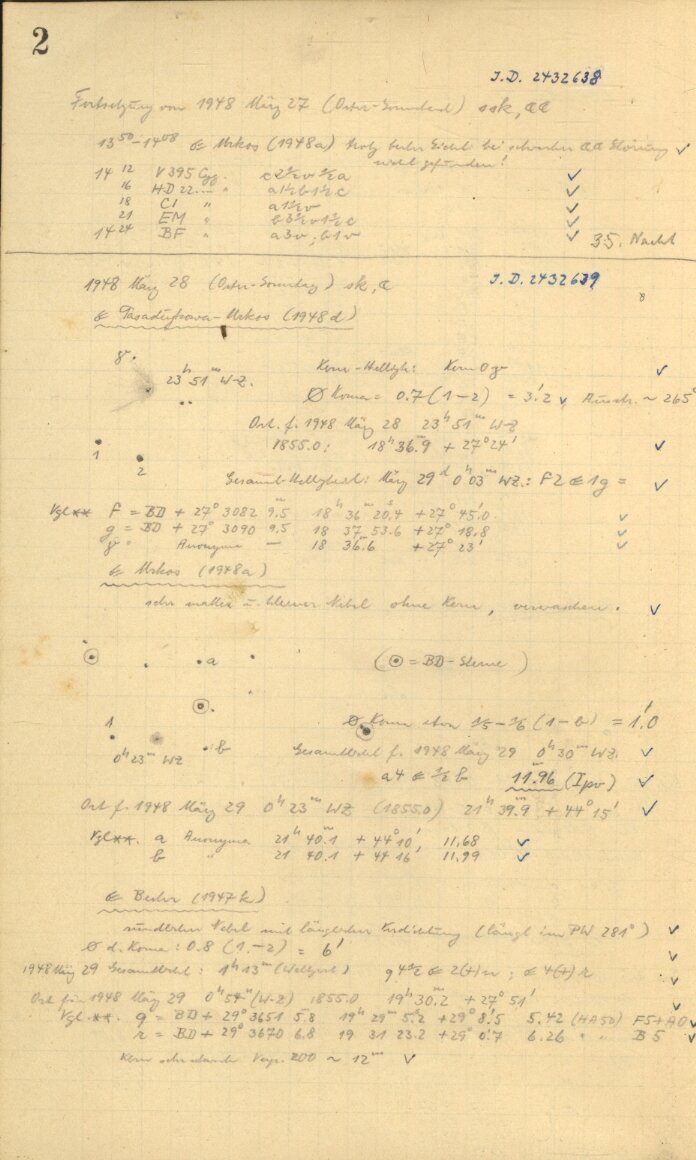 2
J.D. 2432638
Fortsetzung von 1948 März 27 (Oster-Sonnabend) ssk, aa
13 50 – 14 08 Mrkos (1948a) trotz bei schwacher aa Störung ✓
wohl gefunden!
14 12 V 395 Cyg. c2½v½a ✓
16 HD 22... " a1½b1½c ✓
18 CI " a1½v ✓
21 EM " b3½v1½c ✓
14 24 BF " a3v; b1v ✓ 35. Nacht
1948 März 28 (Oster-Sonntag) sk, a J.D. 2432639
☄ Pasadujkowa-Mrkos (1948d)
γ
23h 51m W-Z. Kern-Helligk: Kern 0 γ ✓
Ø Koma = 0.7 (1–2) = 3.'2 ✓ ~ 265°
Ort. f. 1948 März 28 23h 51m WZ
1 1855.0: 18h 36.m9 + 27° 24' ✓
2
Gesamt-Helligkeit: März 29d 0h 03m WZ.: F2 ☄ 1g = ✓
Vgl ** F = BD + 27° 3082 9.m5 18h 36m 20.s4 + 27° 45.'0 ✓
g = BD + 27° 3090 9.5 18 37 53.6 + 27° 18.8 ✓
γ = Anonyma — 18 36.m6 + 27° 23' ✓
☄ Mrkos (1948a)
sehr matter u. kleiner Nebel ohne Kern, verwaschen. ✓
a (⊙ = BD-Sterne)
1 Ø Koma etwa 1/5–1/6 (1–b) = 1.'0
0h 23m WZ b Gesamthell f. 1948 März 29 0h 30m WZ. ✓
a4 ☄ ½ b 11.m96 (Ipv) ✓
Ort f. 1948 März 29 0h 23m WZ (1855.0) 21h 39.m9 + 44° 15' ✓
Vgl **. a Anonyma 21h 40.m1 + 44° 10', 11.68 ✓
b " 21 40.1 + 44 16 11.99 ✓
☄ Bester (1947k)
rundlicher Nebel mit länglicher Verdichtung (längl im PW 281°) ✓
Ø d. Koma: 0.8 (1.–2) = 6' ✓
1948 März 29 Gesamthell: 1h 13m (Weltzeit) q4½ ☄ 2(+)r; ☄ 4(+) r ✓
Ort für 1948 März 29 0h 54m (W-Z) 1855.0 19h 30.m2 + 27° 51' ✓
Vgl. **. q = BD + 29° 3651 5.8 19h 29m 5.s2 + 29° 8.'5 5.42 (HA50) F5+A0 ✓
r = BD + 29° 3670 6.8 19 31 23.2 + 29° 0.'7 6.26 " " B5 ✓
Kern Vergr. 200 ~ 12m ✓